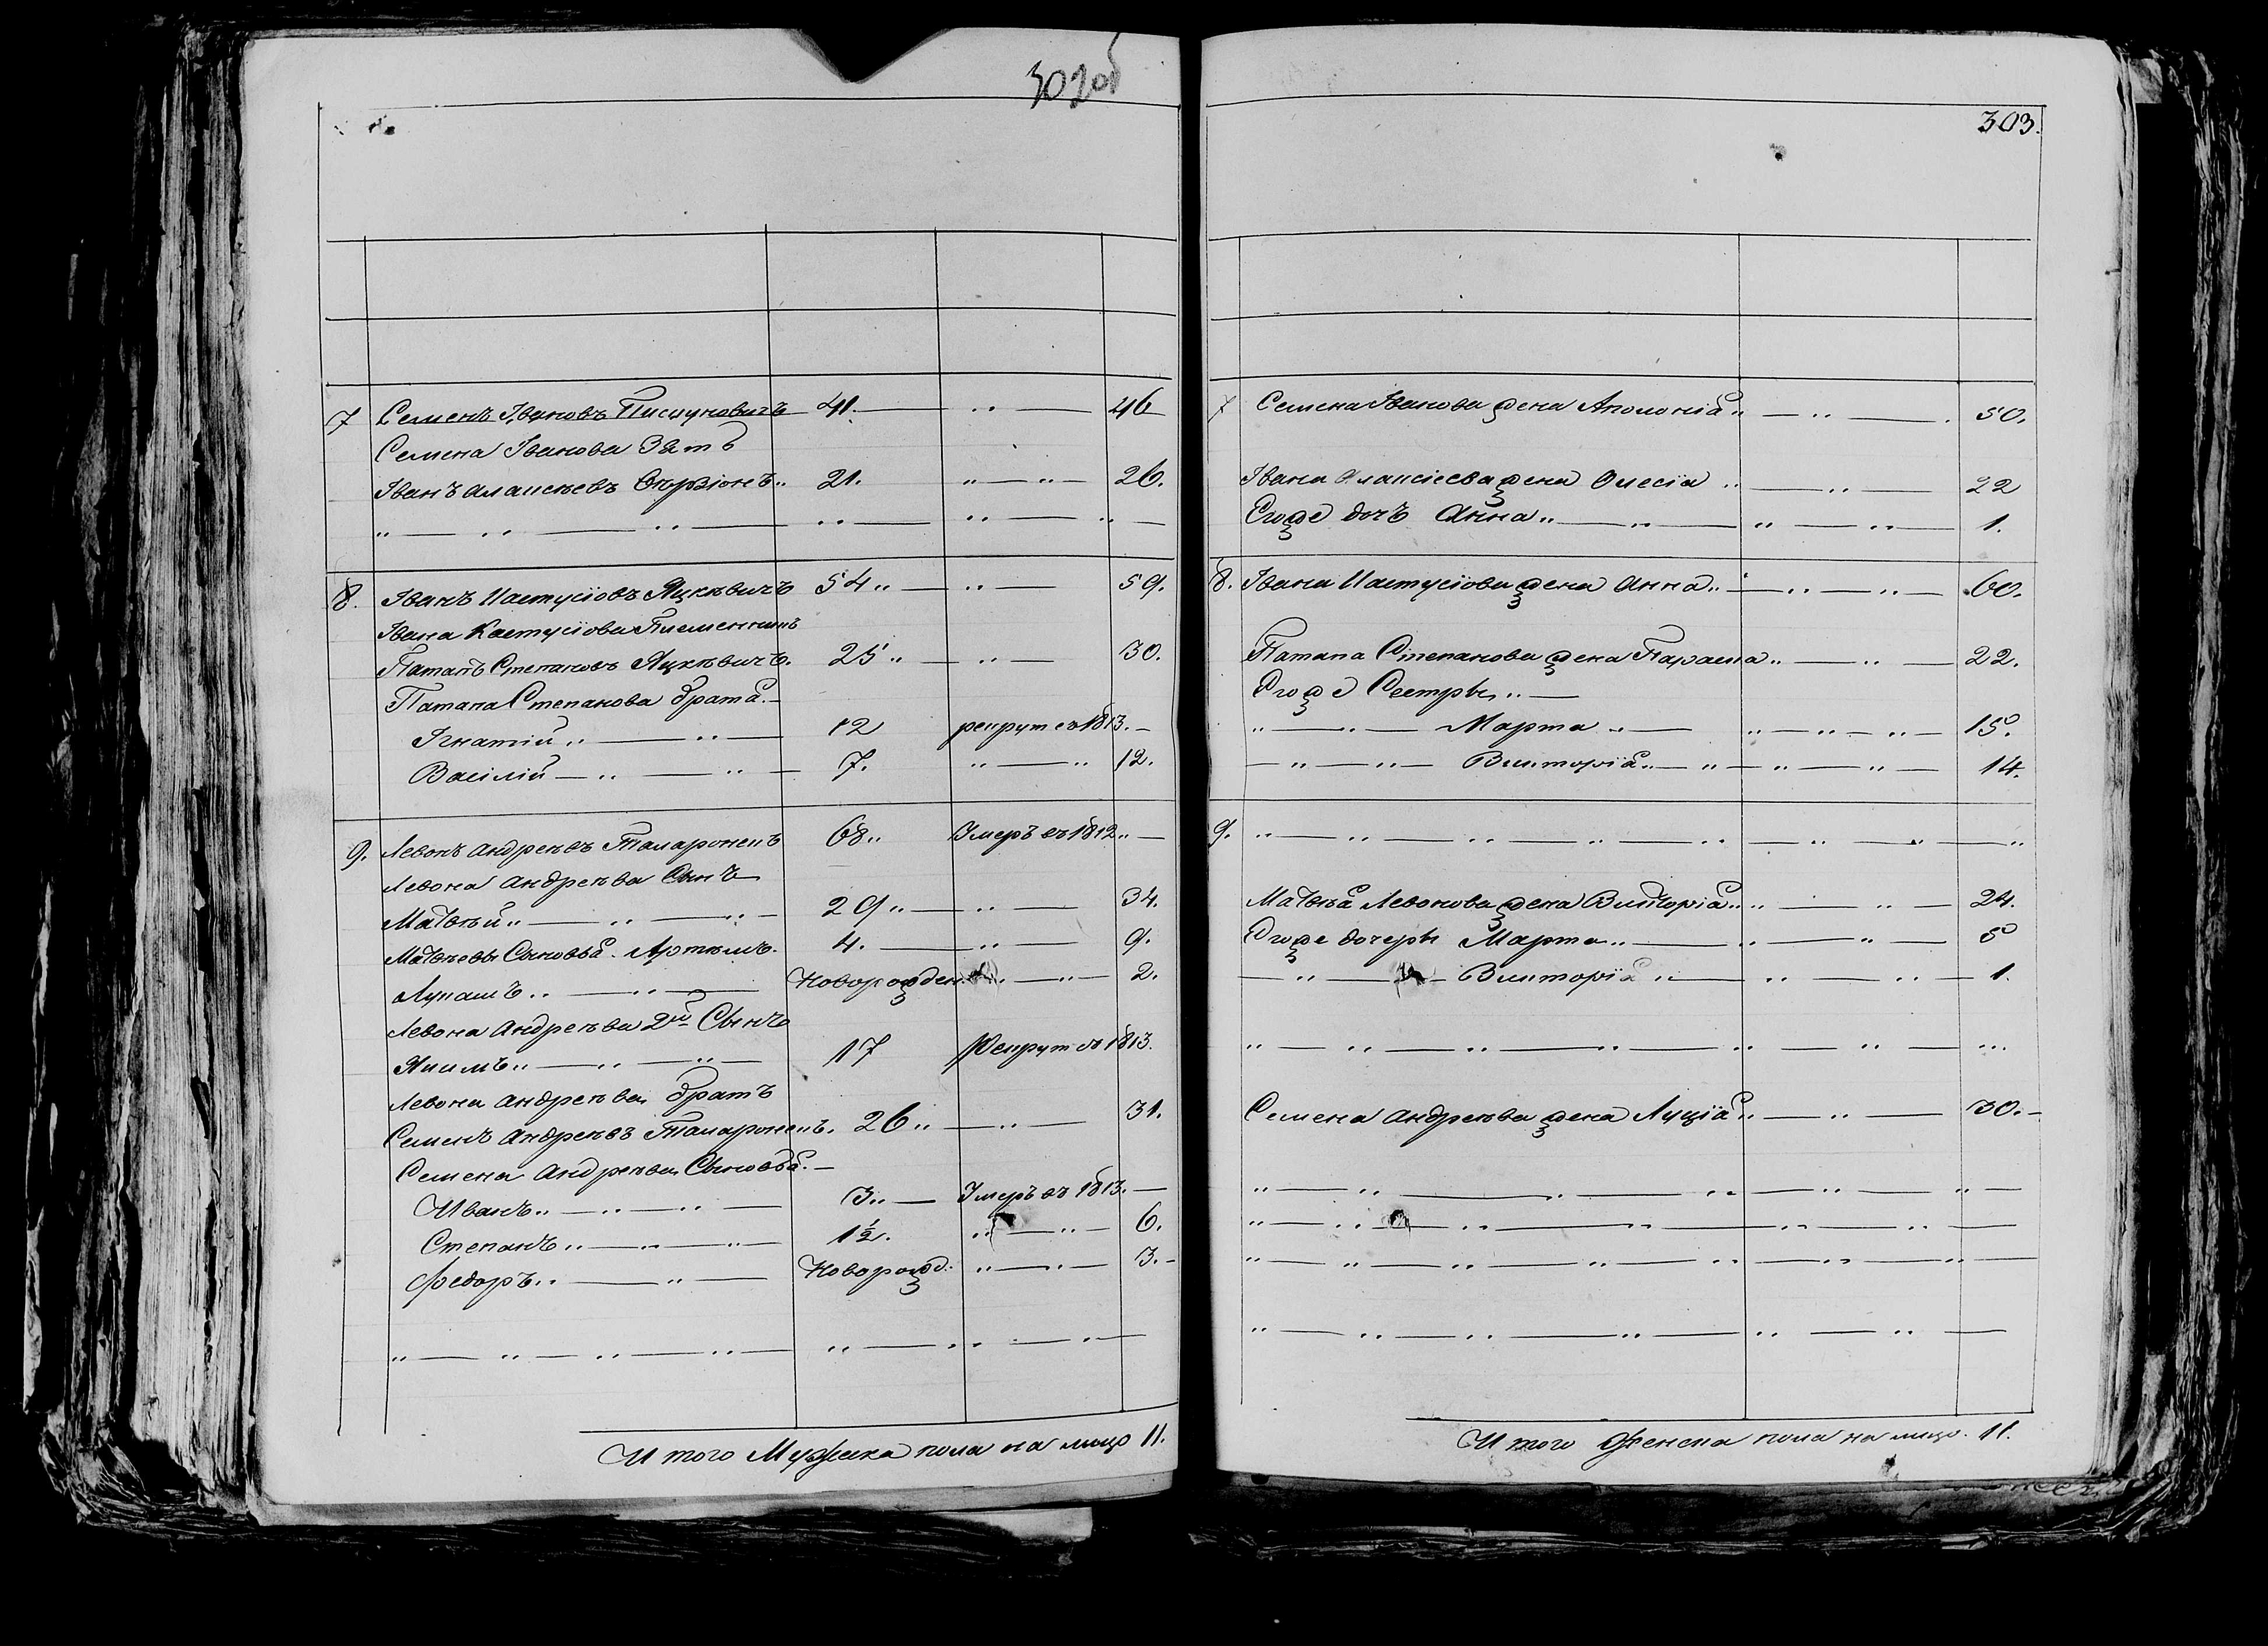 302об
7 Семенъ Ивановъ Пищуковичъ 41. 46
Семена Иванова Зять
Иванъ Алаисѣевъ 21. 26.
8. Иванъ Кастусіовъ Яцкѣвичъ 54 59.
Ивана Кастусіова Племенникъ
Патапъ Степановъ Яцкѣвичъ. 25 30.
Патапа Степанова братья
Игнатій 12 рекрут въ 1813.
Василій 7. 12.
9. Левонъ Андреѣвъ 68 Умеръ въ 1812
Левона Андреѣва Сынъ
Матвѣй 29 34.
Матвѣевы Сыновья Артѣмъ. 4. 9.
Лукашъ Новорожден. 2.
Левона Андреѣва 2й Сынъ
Якимъ 17 Рекрут въ 1813.
Левона Андреѣва братъ
Семенъ Андреѣвъ 26 31.
Семена Андреѣва Сыновья
Иванъ 3 Умеръ въ 1813.
Степанъ 1½. 6.
Федоръ Новорожд. 3.
И того Мужска пола на лицо 11.
303.
7 Семена Иванова жена Аполонія 50.
Ивана Алаксіева жена Олесія 22
Егоже дочъ Анна 1.
8. Ивана Кастусіова жена Анна 60.
Патапа Степанова жена Параска 22.
Егоже Сестры
Марта 15.
Викторія 14.
9.
Матвѣя Левонова жена Викторія 24.
Егоже дочеры Марта 5
Викторія 1.
Семена Андреѣва жена Луція 30.
И того Женска пола на лицо. 11.